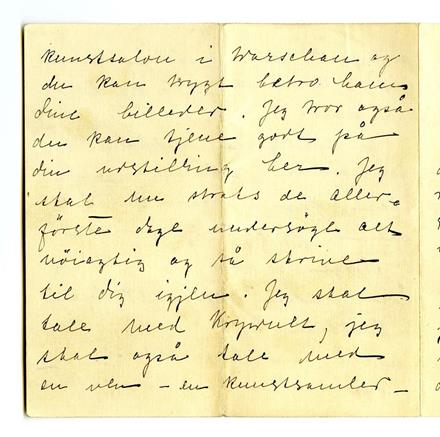 kunstsalon i Warschau og
du kan trygt betro ham
dine billeder. Jeg tror også
du kan tjene godt på
din udstilling her. Jeg
skal nu straks de aller-
første dage undersøge alt
nöiagtig og så skrive
til dig igjen. Jeg skal
tale med Krywult, jeg
skal også tale med
en ven – en kunstsamler –